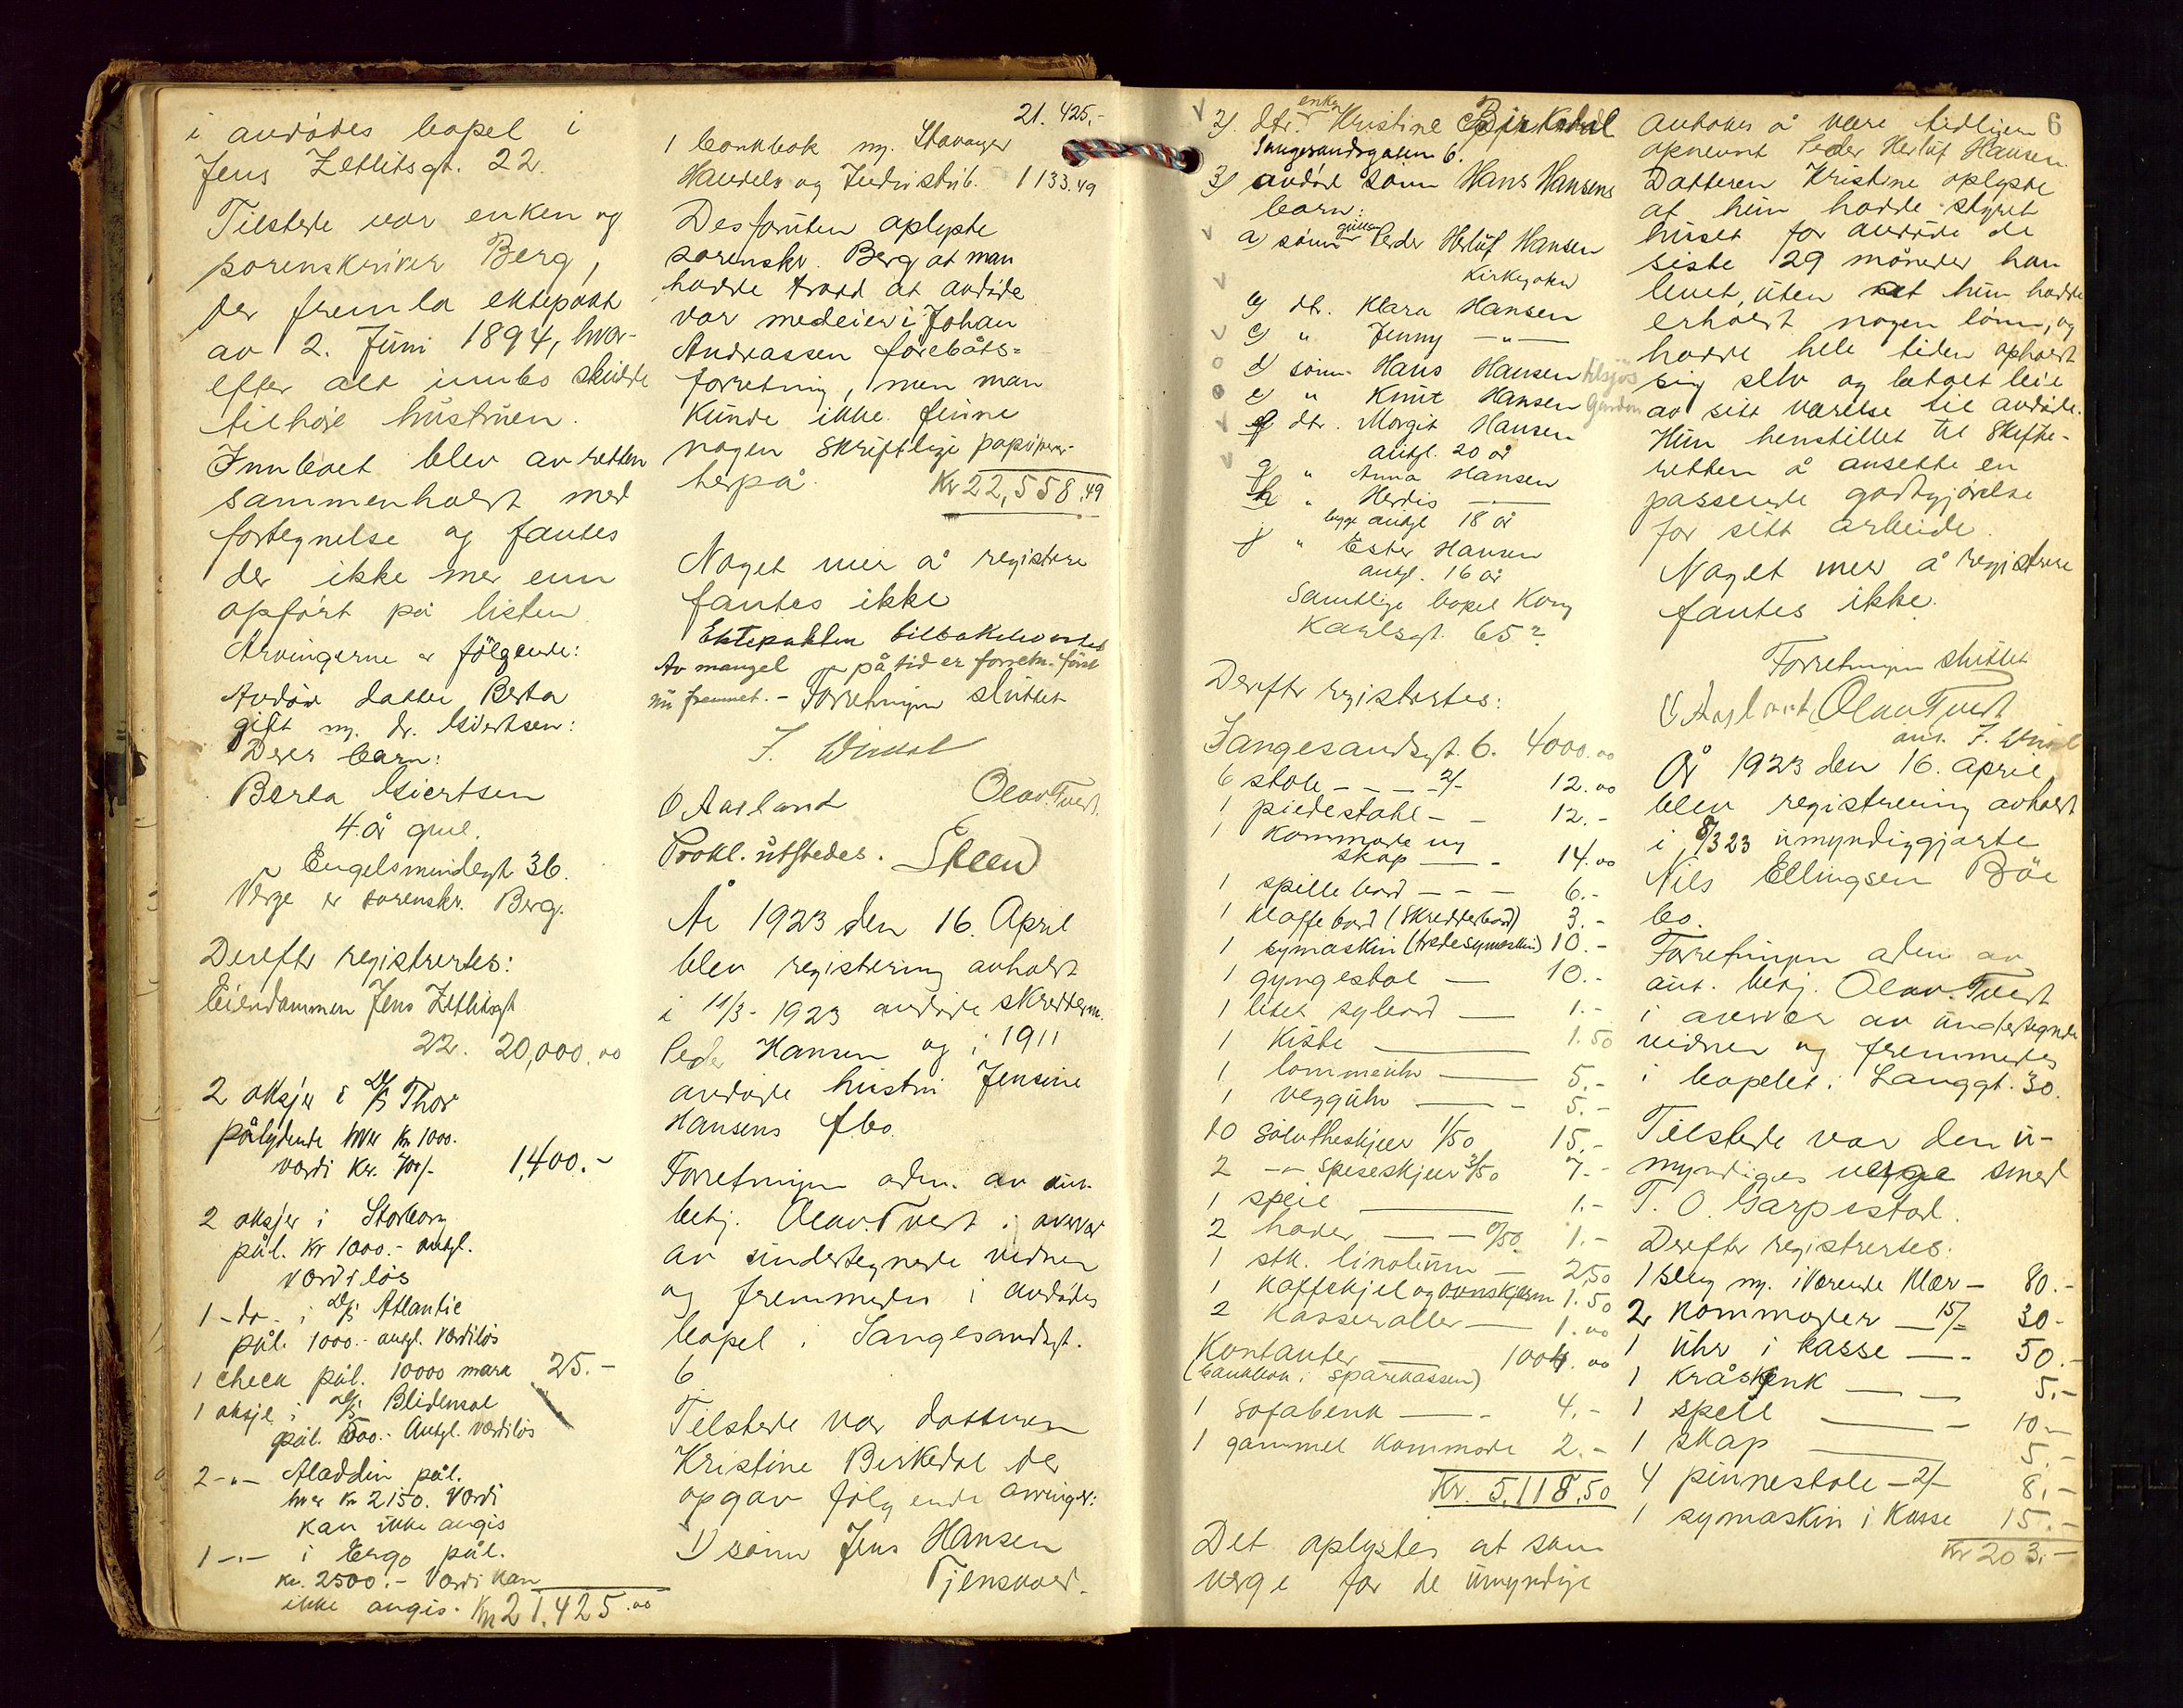 i avdødes bopel i
Jens Zetlitsgt. 22.
Tilstede var enken og
sorenskriver Berg,
der fremla ektepakt
av 2. Juni 1894, hvor-
efter alt innbo skulde
tilhøre hustruen.
Innboet blev av retten
sammenholdt med
fortegnelse og fantes
der ikke mer enn
opført på listen
Arvingerne er følgende:
Avdøde datter Berta
gift m. dr.
Deres barn:
Berta
4 år gml.
Engelsmindegt 36.
Verge er sorenskr. Berg.
Derefter registrertes:
Eiendommen Jens Zetlitsgt
22. 20,000.00
2 aksjer i D/S Thor
pålydende hver kr 1000.-
værdi kr. 700/- 1,400.-
2 aksjer i Storborg
pål. kr 1000.- antgl.
værdiløs
1 -do- i D/S Atlantic
pål. 1000.- antgl. værdiløs
1 check pål. 10000 mark 25.-
1 aksje i D/S Blidensol
pål. 500.- Antgl. værdiløs
2 -"- Aladdin pål.
hver kr 2150. Værdi
kan ikke angis
1 -"- i Ergo pål.
kr. 2500.- Værdi kan
ikke angis. Kr 21.425.00
21.425.-
1 bankbok m. Stavanger
Handels og Industrib. 1133.49
Desforuten oplyste
sorenskr. Berg at man
hadde trodd at avdøde
var medeier i Johan
Andreassen
forretning, men man
kunde ikke finne
nogen skriftlige papirer
herpå. Kr 22,558.49
Noget mer å registrere
fantes ikke
Ektepakten tilbakeleveredes
Av mangel på tid er forretn. først
nu fremmet. - Forretningen sluttet
O Aasland Olav Tveit
Prokl. utstedes. Steen
År 1923 den 16. April
blev registrering avholdt
i 11/3 - 1923 avdøde skredderm.
Peder Hansen og i 1911
avdøde hustru Jensine
Hansens f.bo.
Forretningen adm. av aut.
betj. Olav Tveit i overvær
av undertegnede vidner
og fremmedes i avdødes
bopel i Sangesandsgt.
6
Tilstede var datteren
Kristine Birkedal der
opgav følgende arvinger:
1) sønn Jens Hansen
Tjensvold.
2) dtr. enke Kristine Birkedal
Sangesandsgaten 6.
3) avdød sønn Hans Hansens
barn:
a) sønn Peder Herluf Hansen
b) dtr. Klara Hansen
c) " Jenny -"-
d) sønn Hans Hansen tilsjøs
e) " Knut Hansen
f dtr. Margit Hansen
antgl. 20 år
g " Anna Hansen
h " Herdis
begge antgl 18 år
j " Ester Hansen
antgl. 16 år
Samtlige bopel Kong
Karlsgt. 65?
Derefter registrertes:
Sangesandsgt. 6. 4000.00
6 stole - - - 2/- 12.00
1 piedestahl - - 12.-
1 kommode og
skap - 14.00
1 spillebord - - - 6.-
1 klaffebord (skredderbord) 3.-
1 symaskin (trædesymaskin) 10.-
1 gyngestol - 10.-
1 liten sybord - 1.-
1 kiste 1.50
1 lommeuhr 5.-
1 vegguhr 5.-
10 sølvtheskjeer 1/50 15.-
2 -"- spiseskjeer 3/50 7.-
1 speil 1.-
2 - 0/50 1.-
1 stk. linoleum - 2,50
1 kaffekjel og ovnskjerm 1.50
2 kasseroller - 1.00
Kontanter 1004.00
(bankbok i sparekassen)
1 sofabenk - 4.-
1 gammel kommode 2.-
Kr. 5,118.50
Det oplystes at som
verge for de umyndige
6
antokes å være tidligere
opnevnt Peder Herluf Hansen.
Datteren Kristine oplyste
at hun hadde styret
huset for avdøde de
siste 29 måneder han
levet, uten at hun hadde
erholdt nogen lønn, og
hadde hele tiden opholdt
sig selv og betalt leie
av sitt værelse til avdøde.
Hun henstillet til skifte-
retten å ansette en
passende godtgjørelse
for sitt arbeide.
Noget mer å registrere
fantes ikke.
Forretningen sluttet
O Aasland Olav Tveit
År 1923 den 16. april
blev registrering avholdt
i 8/3 23 umyndiggjorte
Nils Ellingsen Bøe
bo.
Forretningen adm av
aut. betj. Olav Tveit
i overvær av undertegnede
vidner og fremmedes
i bopelet i Langgt. 30.
Tilstede var den u-
myndiges verge smed
T. O. Garpestad.
Derefter registrertes:
1 seng m. iværende klær - 80.-
2 kommoder - 15/- 30.-
1 uhr i kasse - 50.-
1 kråskenk - 5.-
1 speil - 10.-
1 skap 5.-
4 pinnestole - 2/- 8.-
1 symaskin i kasse 15.-
Kr 203.-